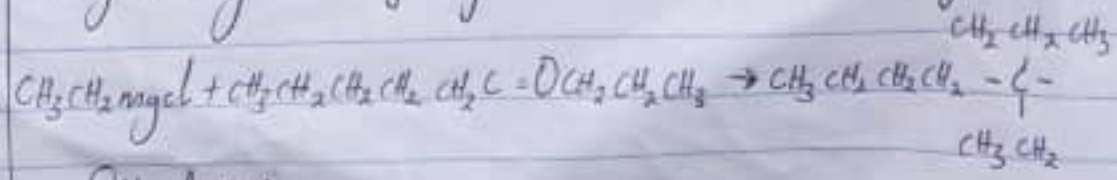 CH₂ CH₂ CH₃
CH₃CH₂mgcl + CH₃CH₂CH₂CH₂ CH₂C=OCH₂CH₂CH₃ → CH₃ CH₂ CH₂CH₂ -C-
CH₃ CH₂